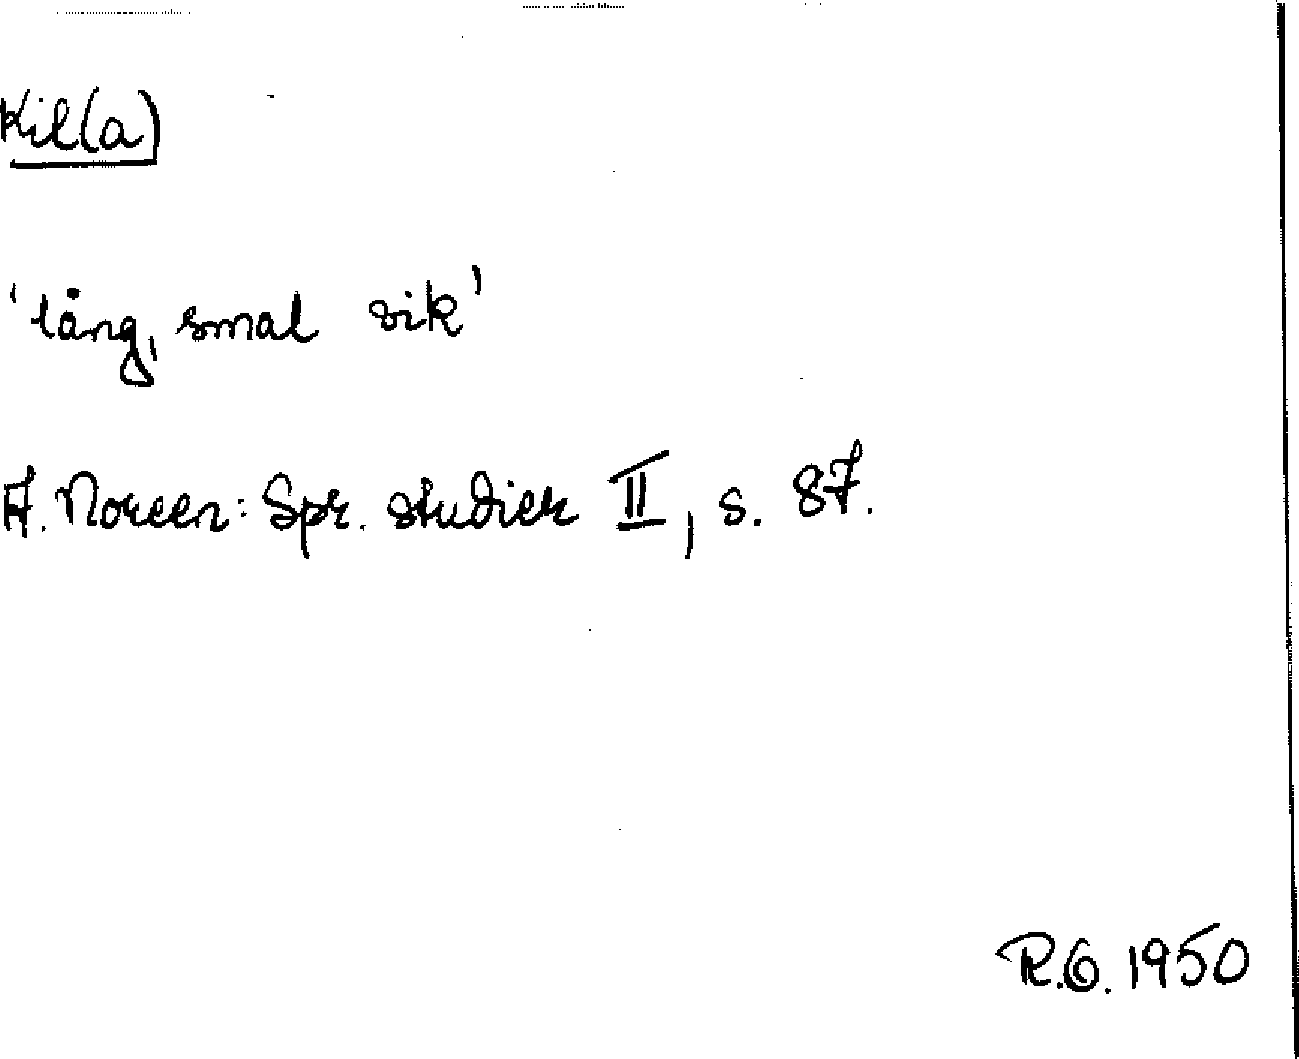 Kil(a)
'lång, smal vik'
A. Noreen: Spr. studier II, s. 87.
R.G. 1950